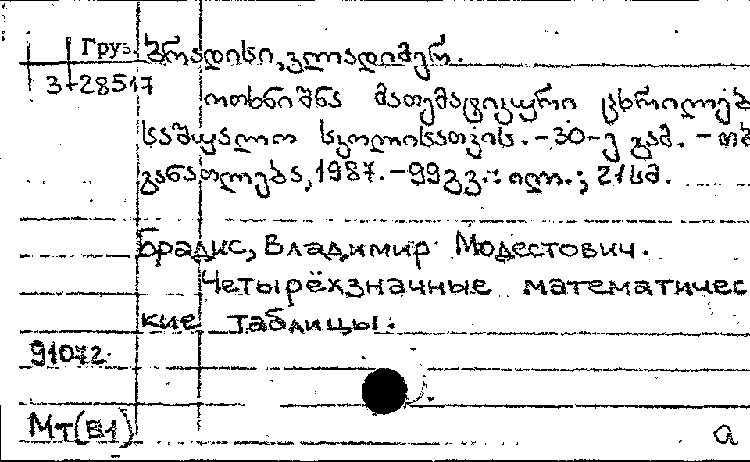 Груз. ბრადისი, ვლადიმერ.
3-28517
ოთხნიშნა მათემატიკური ცხრილებ
საშუალო სკოლისათვის. - 30-ე გამ. - თბ
განათლება, 1987. - 99 გვ.: ილ.; 21 სმ.
Брадис, Владимир Модестович.
Четырёхзначные математичес
кие таблицы.
91072.
Мт(В1)
а